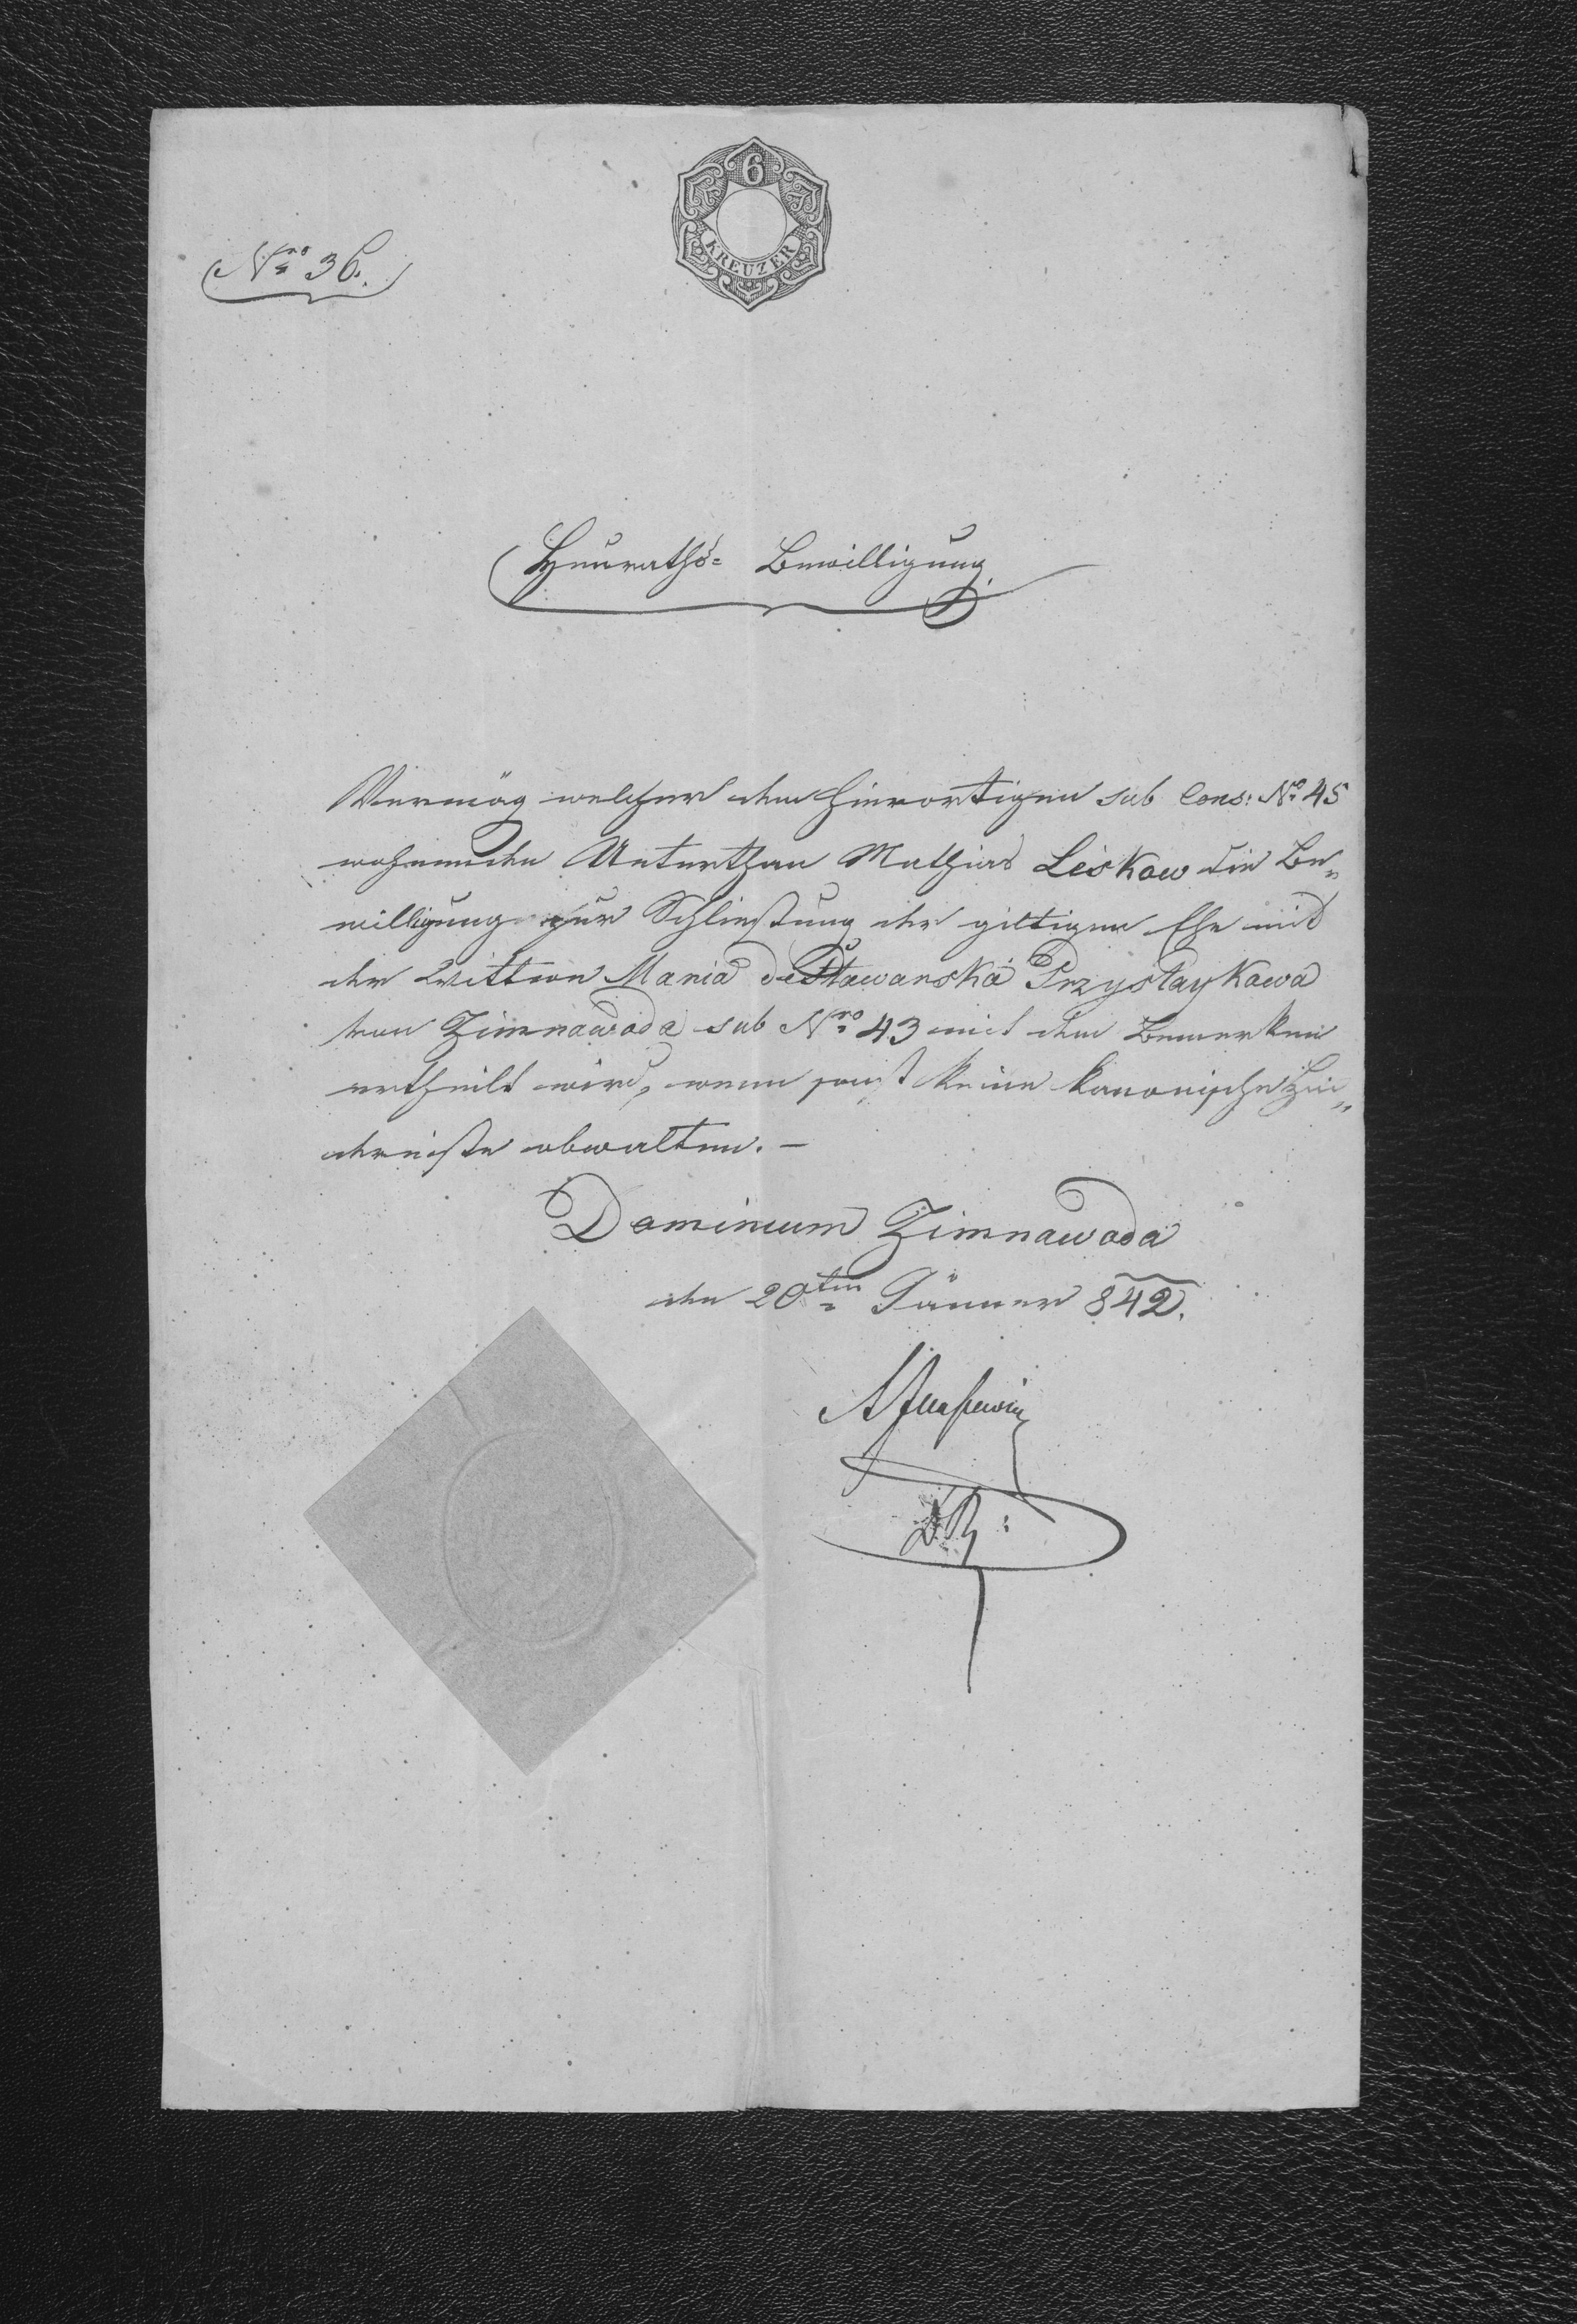 6
KREUZER
Nro 36.
Heuraths= Bewilligung
Vermög welcher dem hierortigen sub Cons: No 45
wohnenden Unterthan Mathias Leskow die Be„
willigung zur Schließung der giltigen Ehe mit
der Wittwe Maria de Stawarska Przystaykowa
von Zimnawoda sub Nro 43 mit dem Bemerken
ertheilt wird, wenn sonst keine kanonische Hin„
derniße obwalten. –
Dominium Zimnawoda
den 20ten Jänner 842.